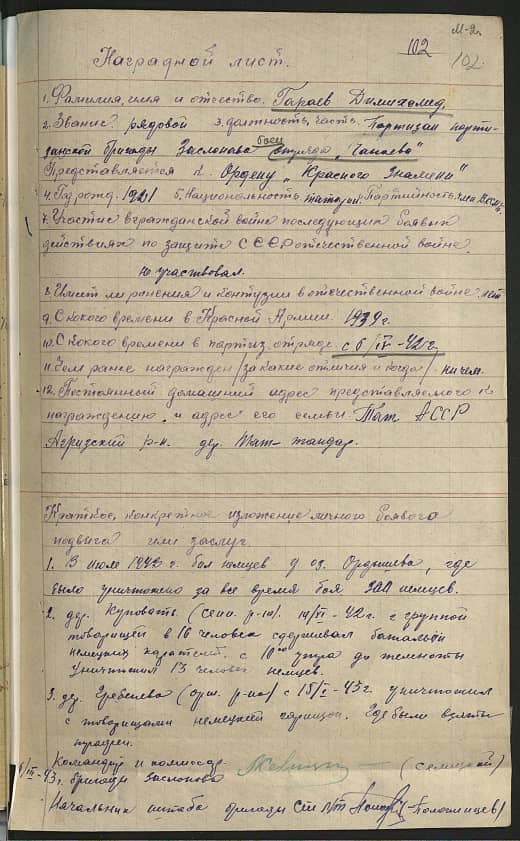 М-2п
102
102.
Наградной лист.
1. Фамилия, имя и отчество. Гараев Димихамед.
2. Звание рядовой 3. должность, часть. Партизан парти-
занской бригады Заслонова боец отряда "Чапаева"
Представляется к. Ордену "Красного Знамени"
4. Год рожд. 1921 5. Национальность татарин. Партийность член ВЛКСМ
7. Участие в гражданской войне последующих боевых
действиях по защите СССР отечественной войне.
не участвовал.
8. Имеет ли ранения и контузии в отечественной войне нет
9. С какого времени в Красной Армии. 1939 г.
10. С какого времени в партиз. отряде. с 6/IV-42 г.
11. Чем ранее награжден /за какие отличия и когда/ ничем.
12. Постоянный домашний адрес представляемого к
награждению, и адрес его семьи Тат АССР
Агризский р-н. дер.
Краткое, конкретное изложение личного боевого
подвига или заслуг
1. В июле 1942 г. бой немцев д. оз. Ордышево, где
было уничтожено за все время боя 300 немцев.
2. дер. Куповать (Сенн. р-на). г. с группой
товарищей в 16 человек сдерживал батальон
немецких карателей. с 10 00 утра до темноты
Уничтожил 13 человек немцев.
3. дер. Гребенево (орш. р-на) с 15/I-43 г. уничтожил
с товарищами немецкий гарнизон. Где были взяты
трофеи.
Командир и комиссар
6/III-43 г. бригады Заслонова (Селицкий)
Начальник штаба бригады